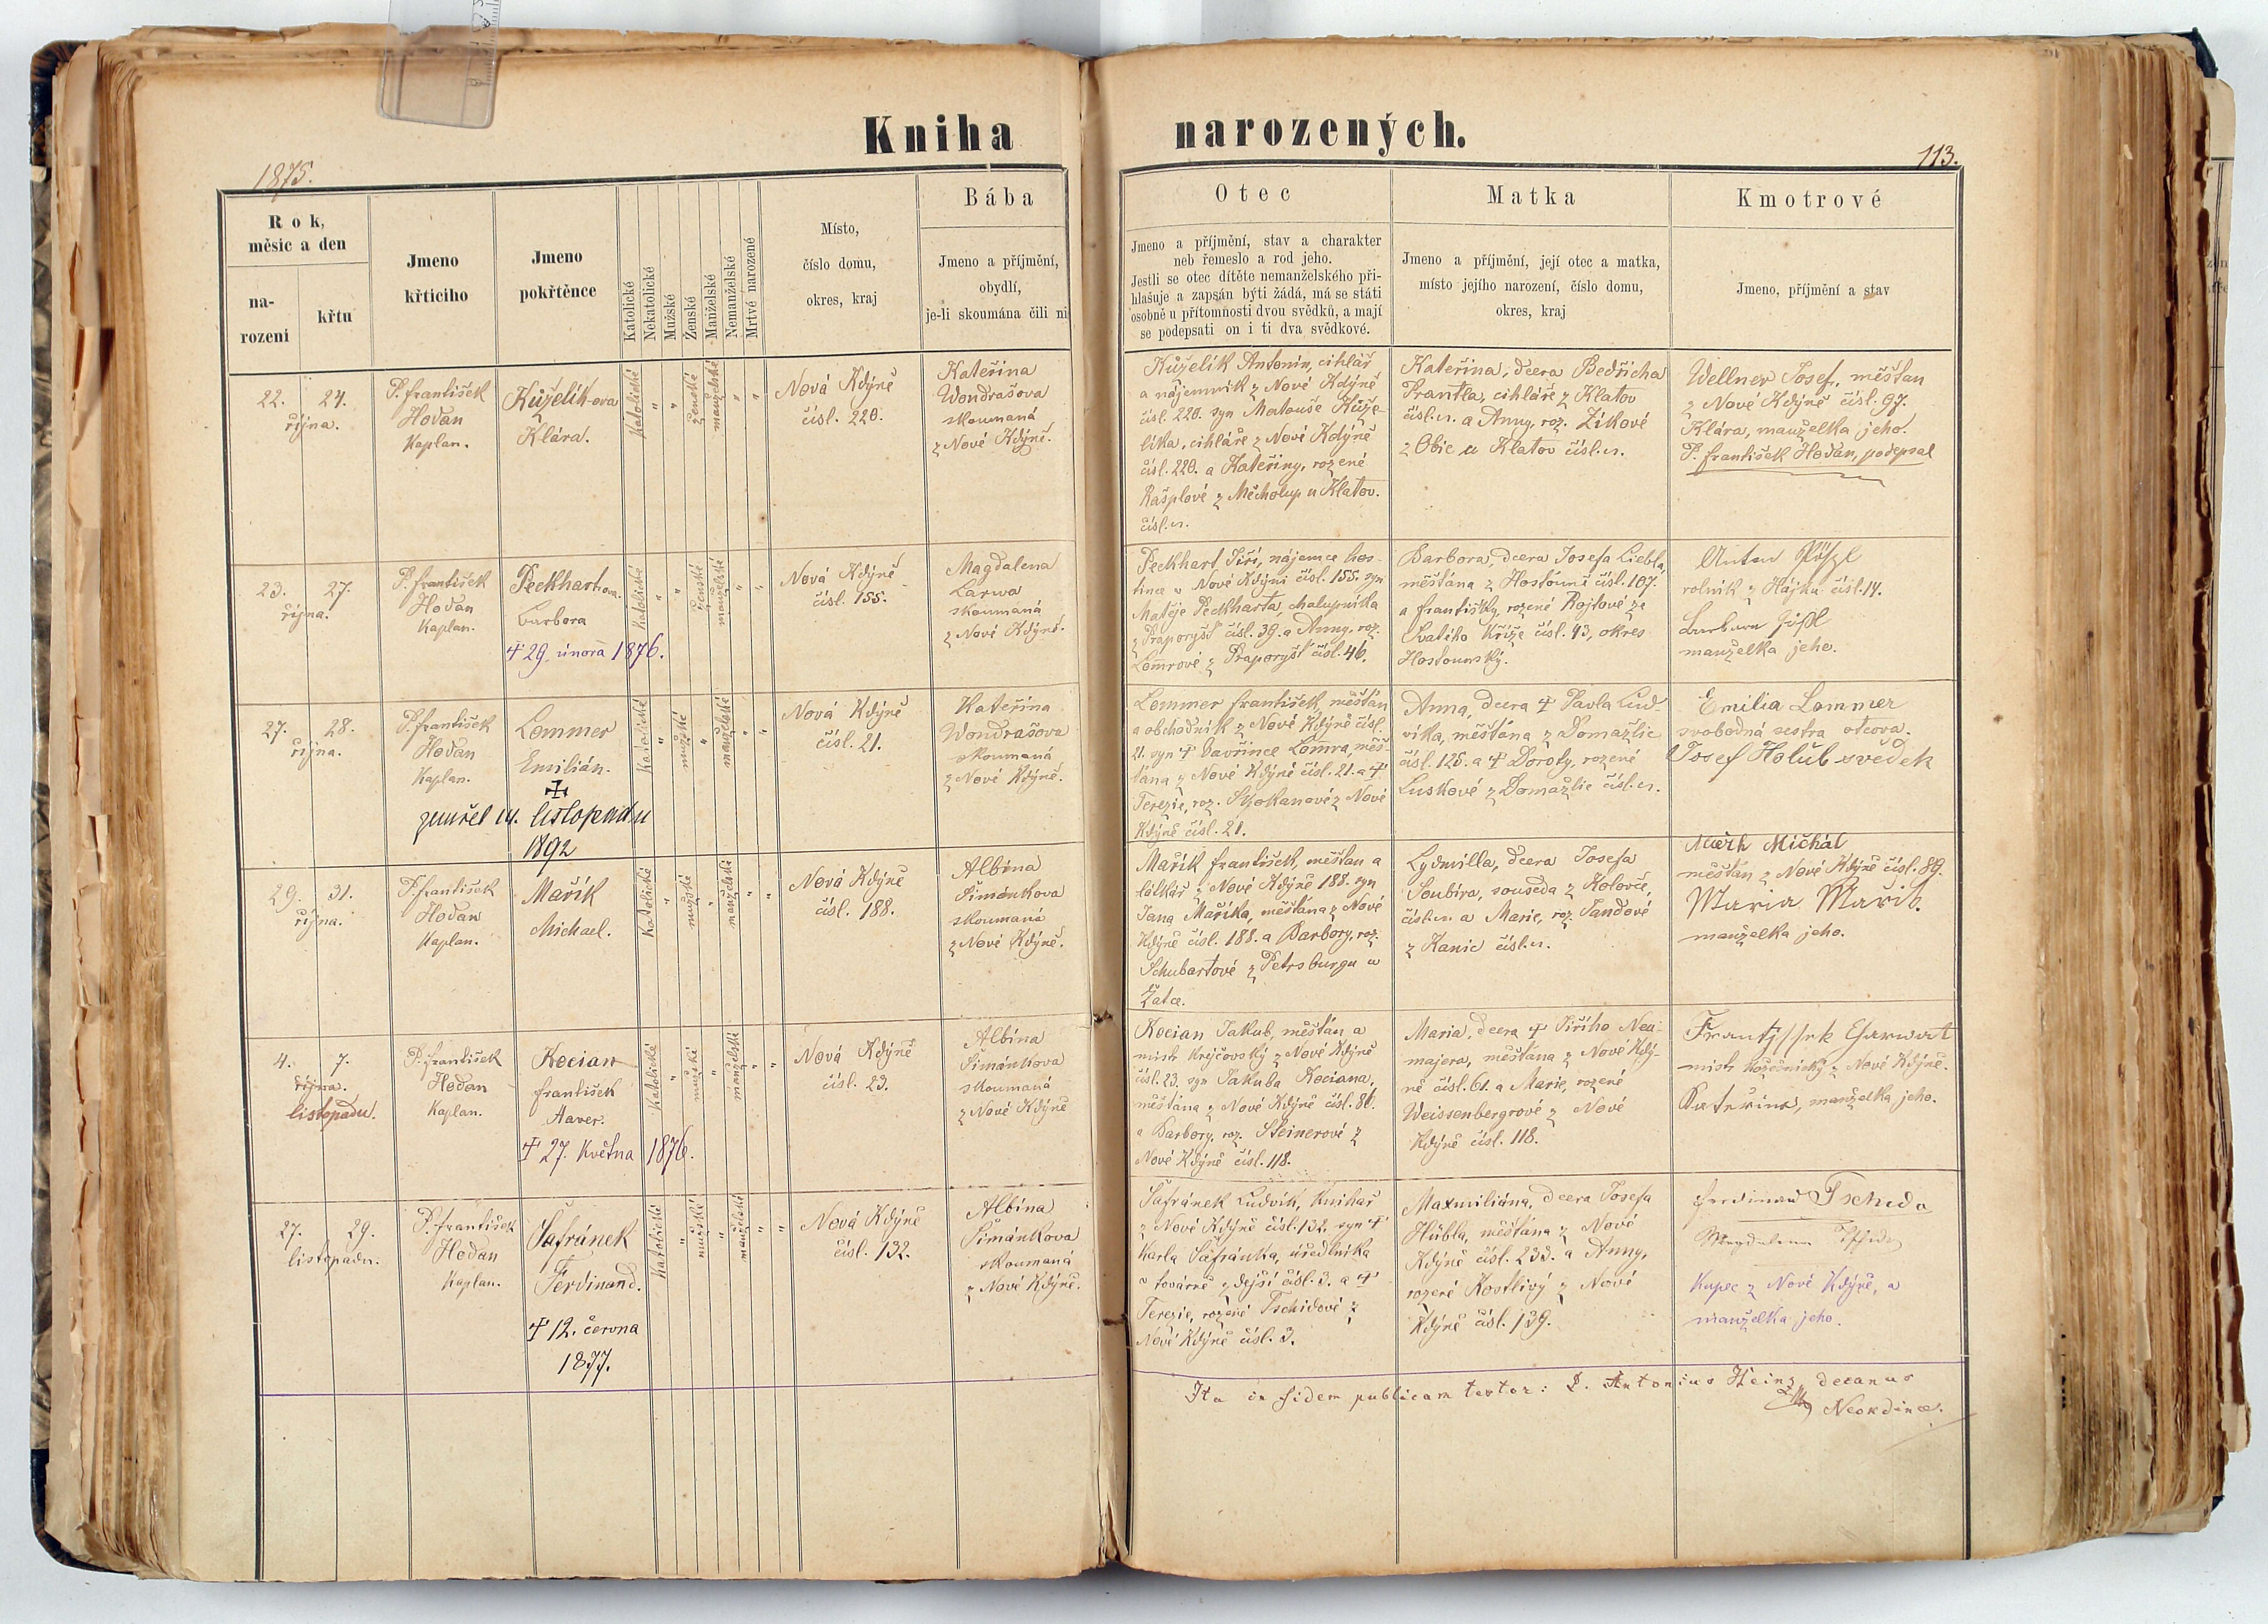 Kniha narozených.
1875.
113.
Rok,
měsíc a den
na-
rození
křtu
Jmeno
křticiho
Jmeno
pokřtěnce
Katolické
Nekatolické
Mužské
Ženské
Manželské
Nemanželské
Mrtvé narozené
Místo,
číslo domu,
okres, kraj
Bába
Jmeno a příjmění,
obydlí,
je-li skoumána čili ni
Otec
Jmeno a příjmění, stav a charakter
neb řemeslo a rod jeho.
Jestli se otec dítěte nemanželského při-
hlašuje a zapsán býti žádá, má se státi
osobně u přítomnosti dvou svědků, a mají
se podepsati on i ti dva svědkové.
Matka
Jmeno a příjmění, její otec a matka,
místo jejího narození, číslo domu,
okres, kraj
Kmotrové
Jmeno, příjmění a stav
22. 24.
října.
P. František
Hodan
Kaplan.
Kůželík-ova
Klára.
Katolické " " ženské manželské " "
Nová Kdýně
čísl. 220.
Kateřina
Wondrašova
skoumaná
z Nové Kdýně.
Kůželík Antonin, cihlář
a nájemník z Nové Kdýně
čísl. 220. syn Matouše Kůže-
líka, cihláře z Nové Kdýně
čísl. 220. a Kateřiny, rozené
Rašplové z Měcholup u Klatov.
čísl. n.
Kateřina, dcera Bedřicha
Prantla, cihláře z Klatov
čísl. n. a Anny, roz. Zikové
z Obic u Klatov čísl. n.
Wellner Josef, měštan
z Nové Kdýně čísl. 97.
Klára, manželka jeho.
P. František Hodan, podepsal
23. 27.
října.
P. František
Hodan
Kaplan.
Peckhart-ova.
Barbora
† 29. února 1876.
Katolické " " ženské manželské " "
Nová Kdýně
čísl. 155.
Magdalena
Larwa
skoumaná
z Nové Kdýně.
Peckhart Jiří, nájemce hos-
tince v Nové Kdýni čísl. 155. syn
Matěje Peckharta, chalupníka
z Praporyšť čísl. 39. a Anny, roz.
Lomrové z Praporyšť čísl. 46.
Barbora, dcera Josefa Liebla,
měštána z Hostouně čísl. 107.
a Františky, rozené Rojtové ze
Svatého Kříže čísl. 43, okres
Hostounský.
Anton
rolník z Hájku čísl. 14.
Barbara
manželka jeho.
27. 28.
října.
P. František
Hodan
Kaplan.
Lommer
Emilián.
zemřel 14. listopadu
1892
Katolické " mužské " manželské " "
Nová Kdýně
čísl. 21.
Kateřina
Wondrašova
skoumaná
z Nové Kdýně.
Lommer František, měštan
a obchodník z Nové Kdýně čísl.
21. syn † Vavřince Lomra, měš-
tána z Nové Kdýně čísl. 21. a †
Terezie, roz. Skokanové z Nové
Kdýně čísl. 21.
Anna, dcera † Pavla Lud-
víka, měštána z Domažlic
čísl. 125. a † Doroty, rozené
Luskové z Domažlic čísl. n.
Emilia Lommer
svobodná sestra otcova.
Josef Holub svědek
29. 31.
října.
P. František
Hodan
Kaplan.
Mařík
Michael.
Katolické " mužské " manželské " "
Nová Kdýně
čísl. 188.
Albína
Šimánkova
skoumaná
z Nové Kdýně.
Mařík František, měštan a
látkář z Nové Kdýně 188. syn
Jana Maříka, měštána z Nové
Kdýně čísl. 188. a Barbory, roz.
Schubartové z Petrsburgu u
Žatce.
Lydmilla, dcera Josefa
Soubira, souseda z Koloveč,
čísl. n. a Marie, roz. Jandové
z Kanic čísl. n.
Michál
měštan z Nové Kdýně čísl. 89.
Maria Mařík.
manželka jeho.
4. 7.
října.
listopadu.
P. František
Hodan
Kaplan.
Kocian
František
Xaver.
† 27. Května 1876.
Katolické " mužské " manželské " "
Nová Kdýně
čísl. 23.
Albína
Šimánkova
skoumaná
z Nové Kdýně
Kocian Jakub, měštan a
mistr krejčovský z Nové Kdýně
čísl. 23. syn Jakuba Kociana,
měštána z Nové Kdýně čísl. 86.
a Barbory, roz. Steinerové z
Nové Kdýně čísl. 118.
Maria, dcera † Jiřího Nea-
majera, měštána z Nové Kdý-
ně čísl. 61. a Marie, rozené
Weissenbergrové z Nové
Kdýně čísl. 118.
mistr kožešnický z Nové Kdýně.
Kateřina, manželka jeho.
27. 29.
listopadu.
P. František
Hodan
Kaplan.
Šafránek
Ferdinand.
† 12. června
1877.
Katolické " mužské " manželské " "
Nová Kdýně
čísl. 132.
Albína
Šimánkova
skoumaná
z Nové Kdýně.
Šafránek Ludvík, knihař
z Nové Kdýně čísl. 132. syn †
Karla Šafránka, úředníka
v továrně zdejší čísl. 3. a †
Terezie, rozené Tschidové z
Nové Kdýně čísl. 3.
Maxmiliána, dcera Josefa
Hübla, měštána z Nové
Kdýně čísl. 233. a Anny,
rozené Kostlivý z Nové
Kdýně čísl. 139.
Ferdinand Tschida
Magdalena
Kupec z Nové Kdýně, a
manželka jeho.
Ita in fidem publicam testor: P. Antonius Heinz, decanus
Neokdinae.